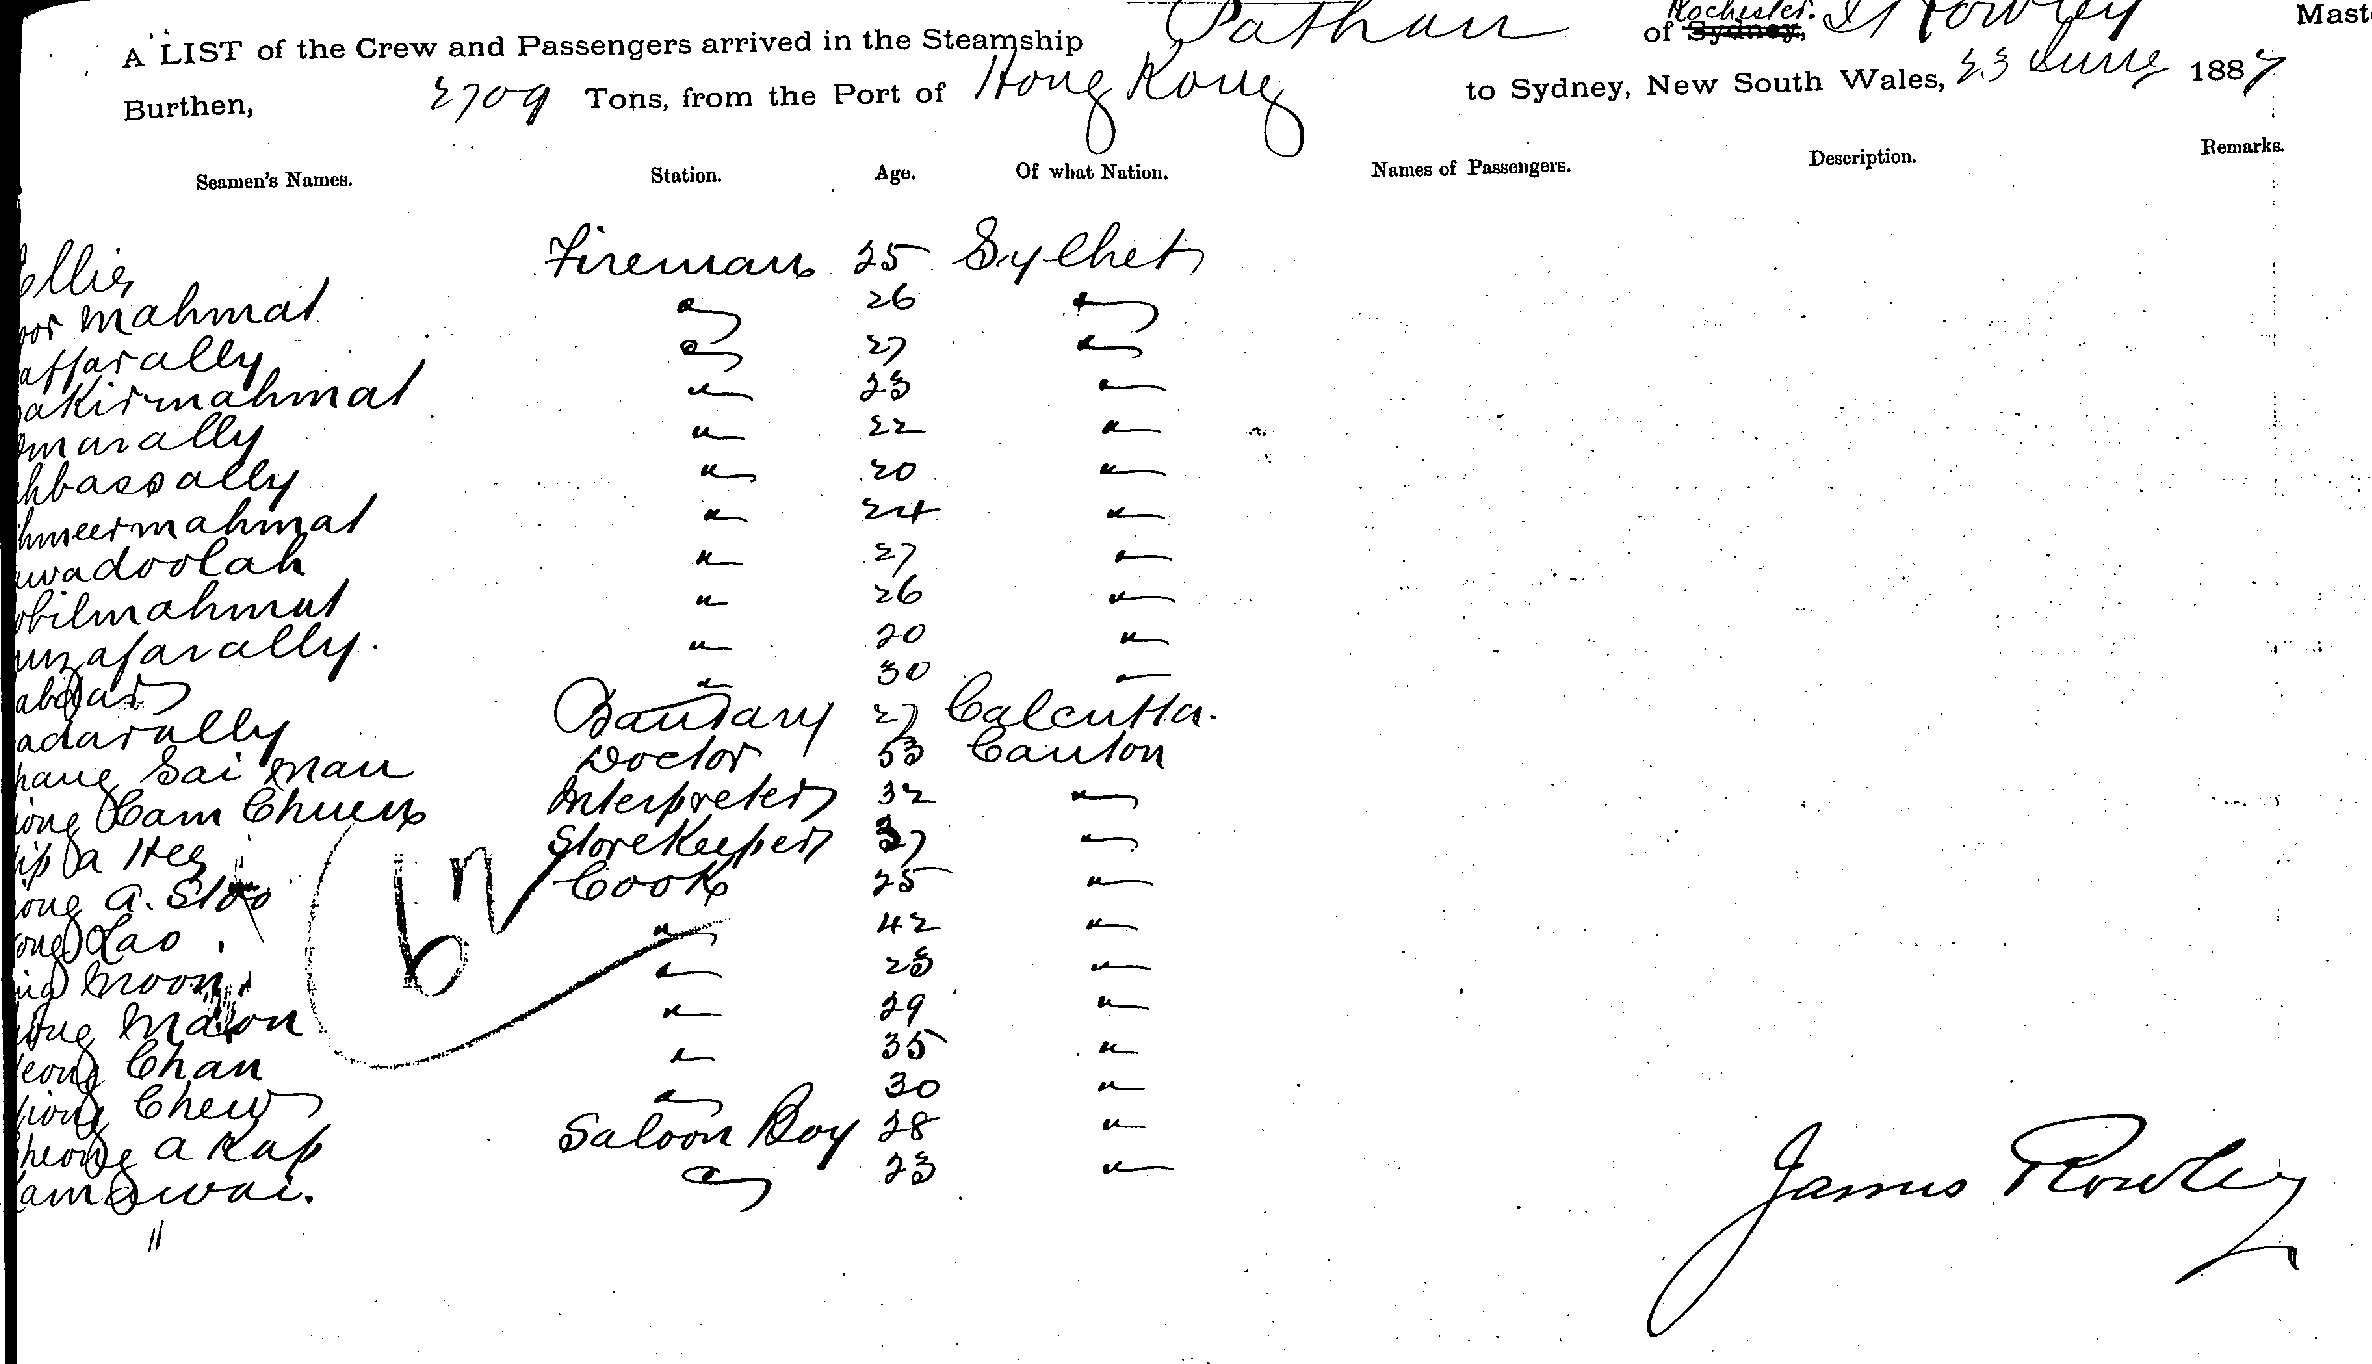 A LIST of the Crew and Passengers arrived in the Steamship Pathan of Rochester. Sydney, J Rowley Mast
Burthen, 2709 Tons, from the Port of Hong Kong to Sydney, New South Wales, 23 June 1887
Seamen's Names. Station. Age. Of what Nation. Names of Passengers. Description. Remarks.
ollie Fireman 25 Sylhet
oor mahmat " 26 "
affarally " 27 "
akirmahmat " 23 "
omarally " 22 "
hbassally " 20 "
hmeermahmat " 24 "
uwadoolah " 27 "
obilmahmut " 26 "
unzafarally. " 20 "
abdar " 30 "
adarally Bandary 27 Calcutta.
hang Sai Man Doctor 53 Canton
iong Cam Chuen Interpreter 32 "
ip a Hee Storekeeper 37 "
ong a. Cook 25 "
ong Lao " 42 "
Moon " 28 "
ong Maon " 29 "
eong Chan " 35 "
iong Chew " 30 "
heong a Kap Saloon Boy 28 "
am Swai. " 23 "
James Rowley